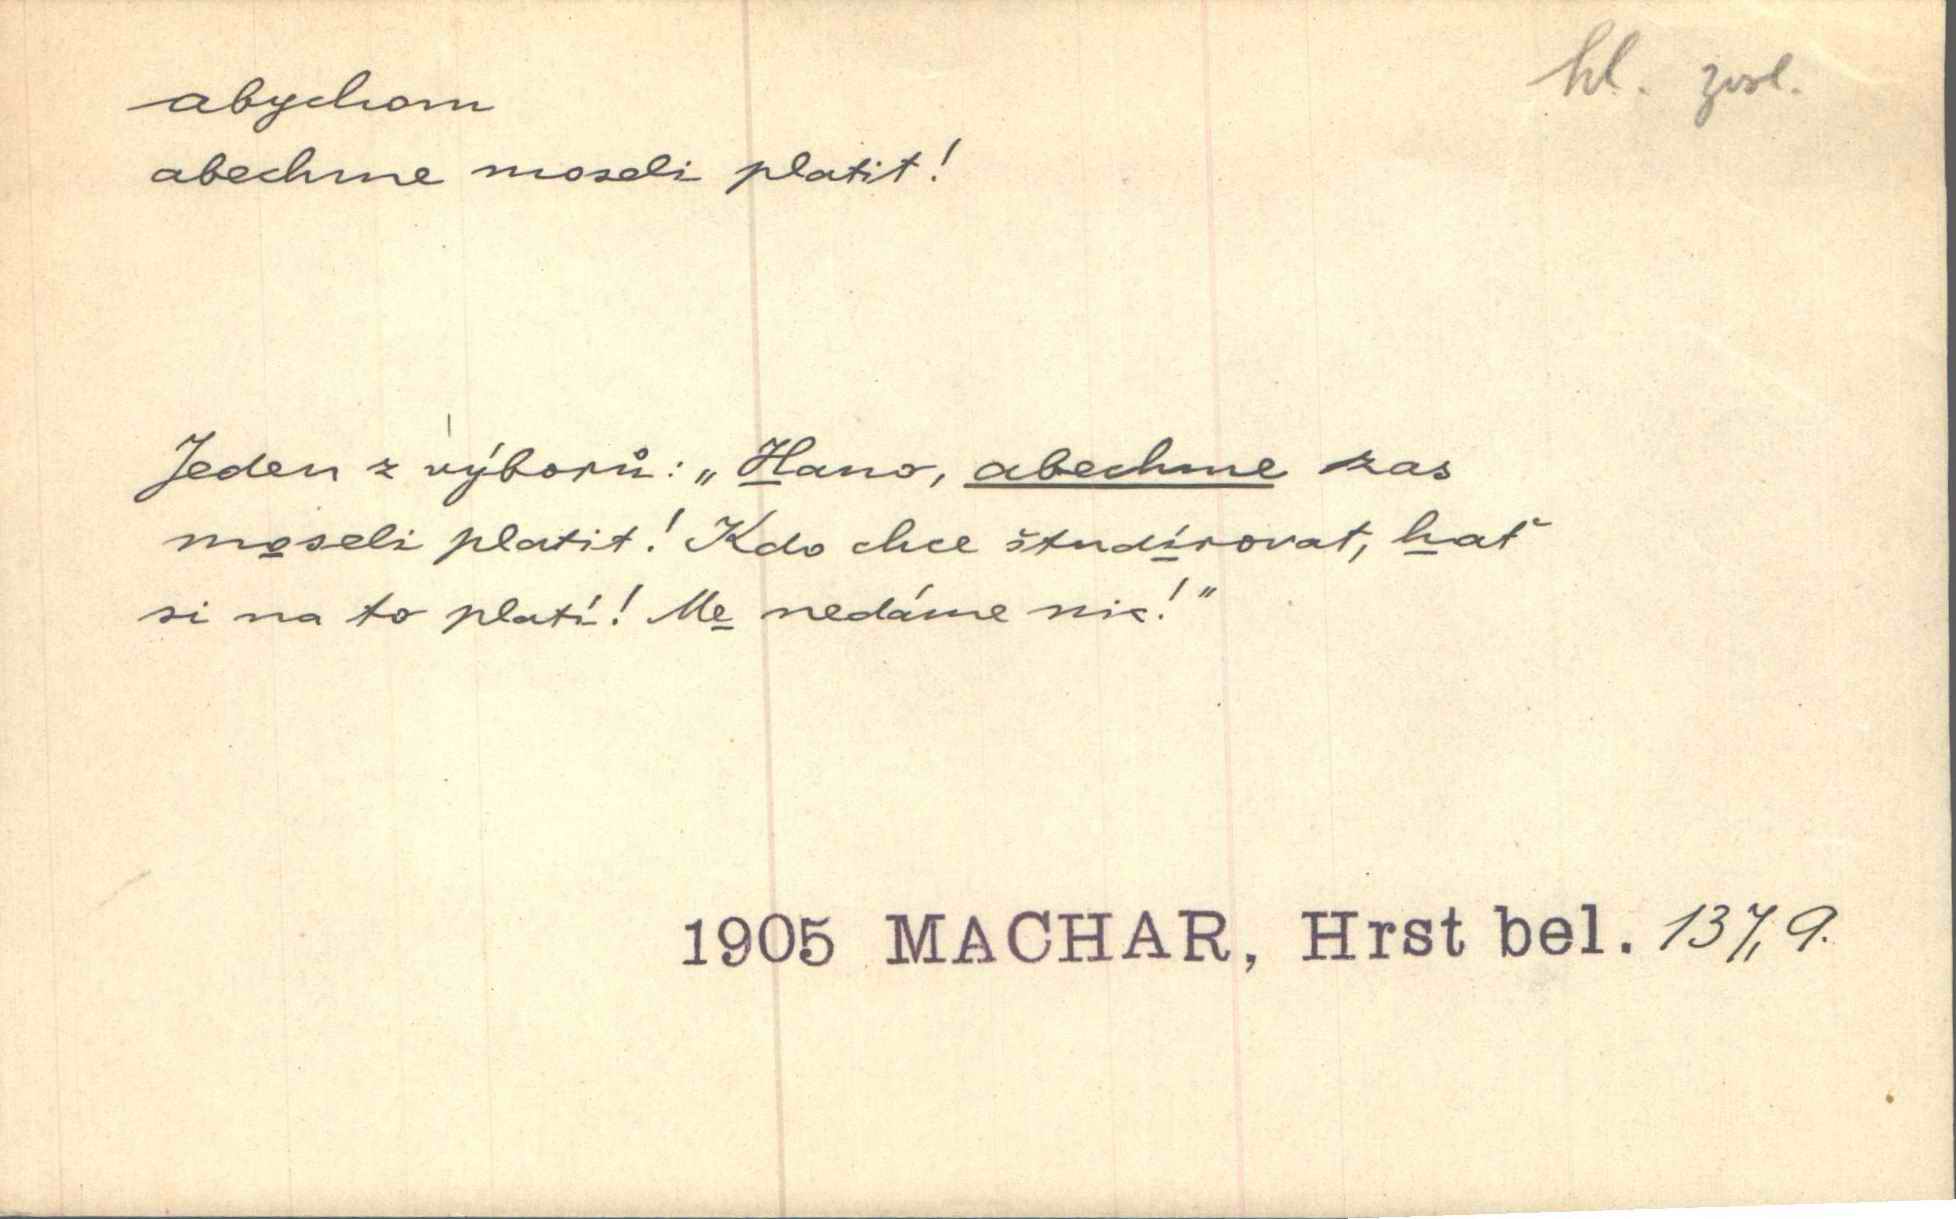 abychom
hl. zvl.
abechme moseli platit!
Jeden z výborů: „Hano, abechme zas
moseli platit! Kdo chce študírovat, hať
si na to platí! Me nedáme nic!"
1905 MACHAR, Hrst bel. 137, 9.